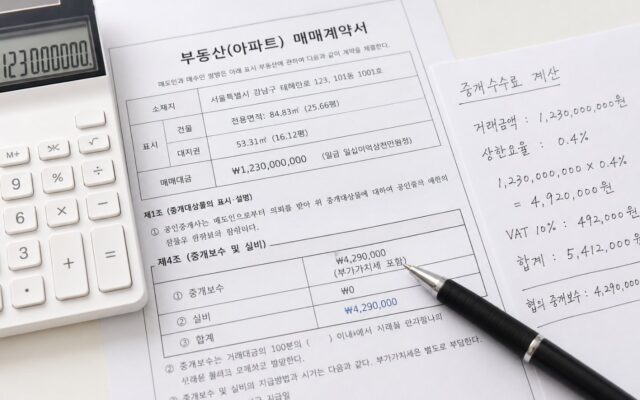 123000000.
M+
MC
√
9
%
÷
6
×
−
3
+
=
.
부동산(아파트) 매매계약서
매도인과 매수인 쌍방은 아래 표시 부동산에 관하여 다음과 같이 계약을 체결한다.
소재지
서울특별시 강남구 테헤란로 123, 101동 1001호
표시
건물
전용면적: 84.83㎡ (25.66평)
대지권
53.31㎡ (16.12평)
매매대금
₩1,230,000,000 (일금 일십이억삼천만원정)
제1조 (중개대상물의 표시·설명)
① 공인중개사는 매도인으로부터 의뢰를 받아 위 중개대상물에 대하여
제4조 (중개보수 및 실비)
① 중개보수
₩4,290,000
(부가가치세 포함)
② 실비
₩0
③ 합계
₩4,290,000
② 중개보수는 거래대금의 100분의 ( )
② 중개보수 및 실비의 지급방법과 시기는 다음과 같다. 부가가치세는 별도로 부담한다.
지급일
중개수수료 계산
거래금액 : 1,230,000,000원
상한요율 : 0.4%
1,230,000,000 × 0.4%
= 4,920,000원
VAT 10% : 492,000원
합계 : 5,412,000원
협의 중개보수 : 4,290,000